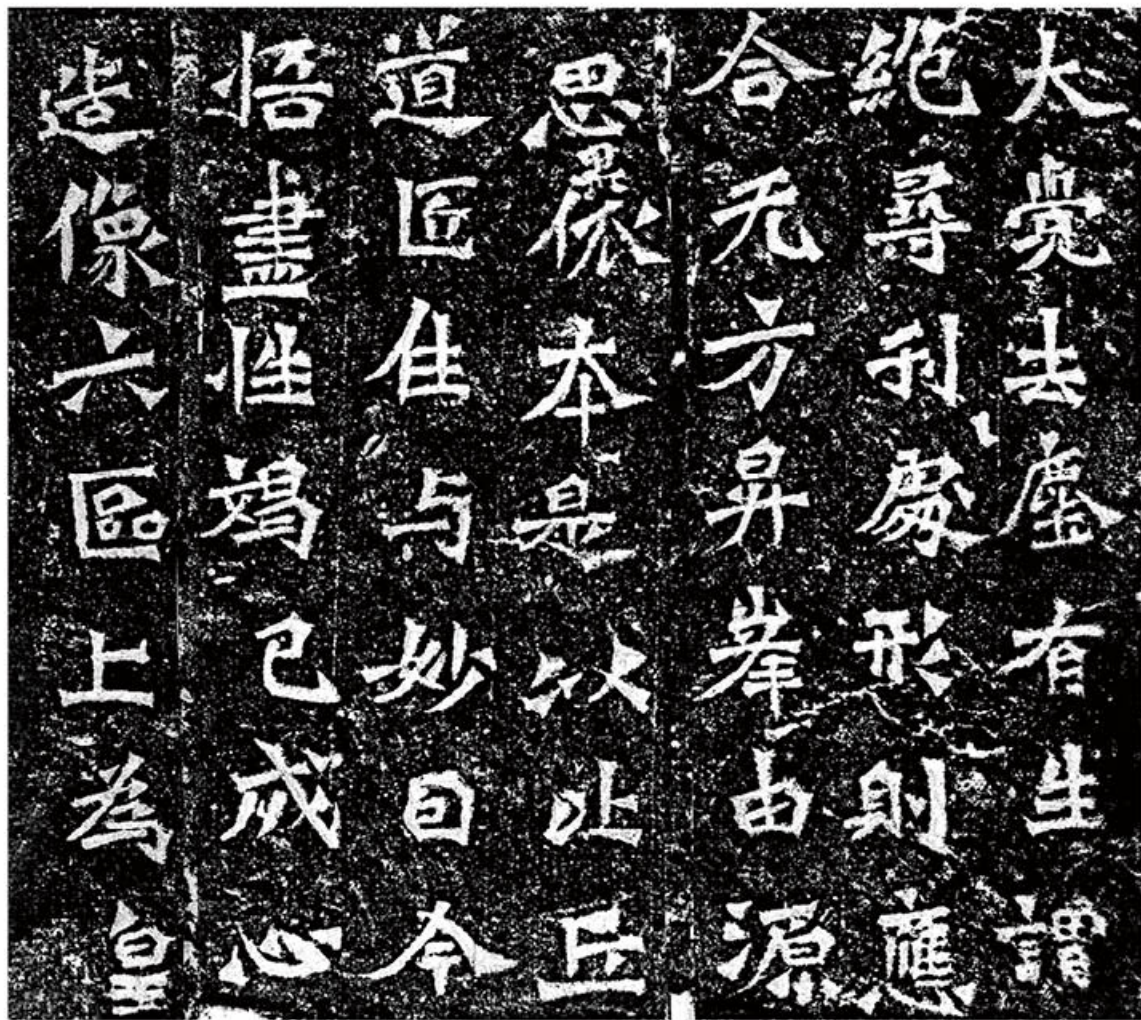 大覺去塵有生謂
絶尋刹處形則應
合无方昇峯由源
思累依本是以比丘
道匠住与妙因今
悟盡性竭已成心
造像六區上為皇